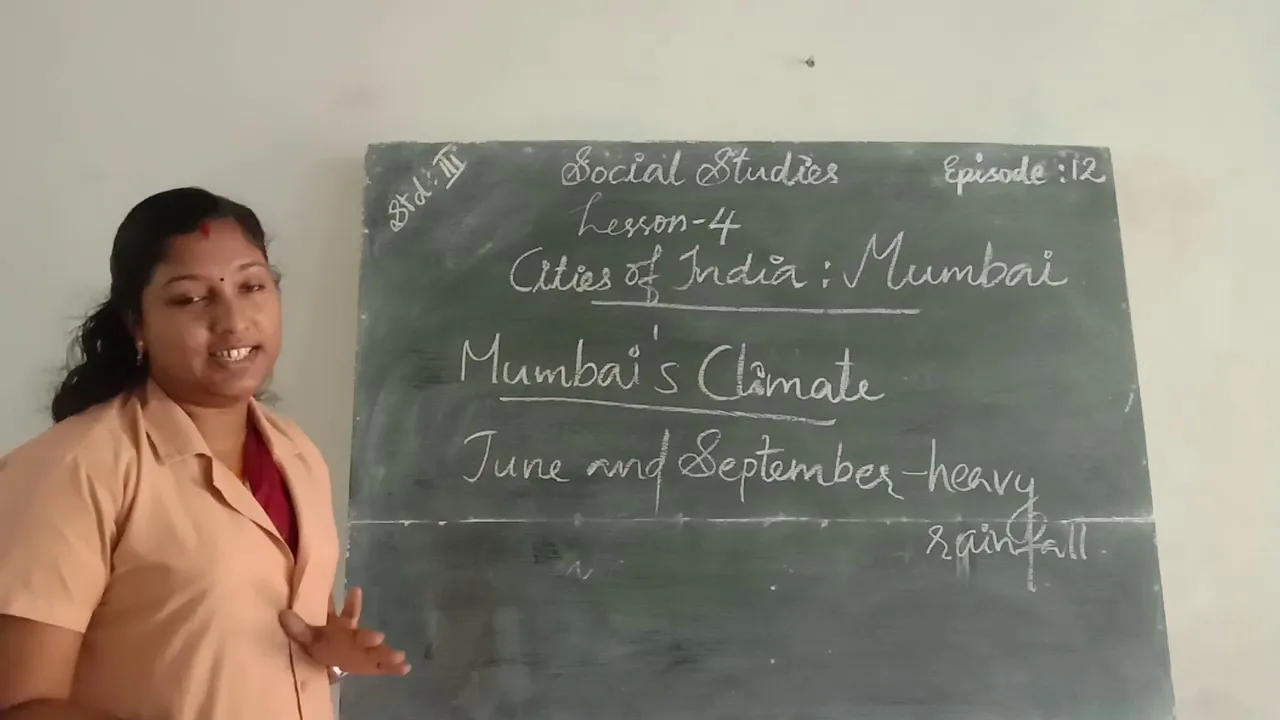 Std: III
Social Studies
Episode :12
Lesson-4
Cities of India : Mumbai
Mumbai's Climate
June and September-heavy
rainfall